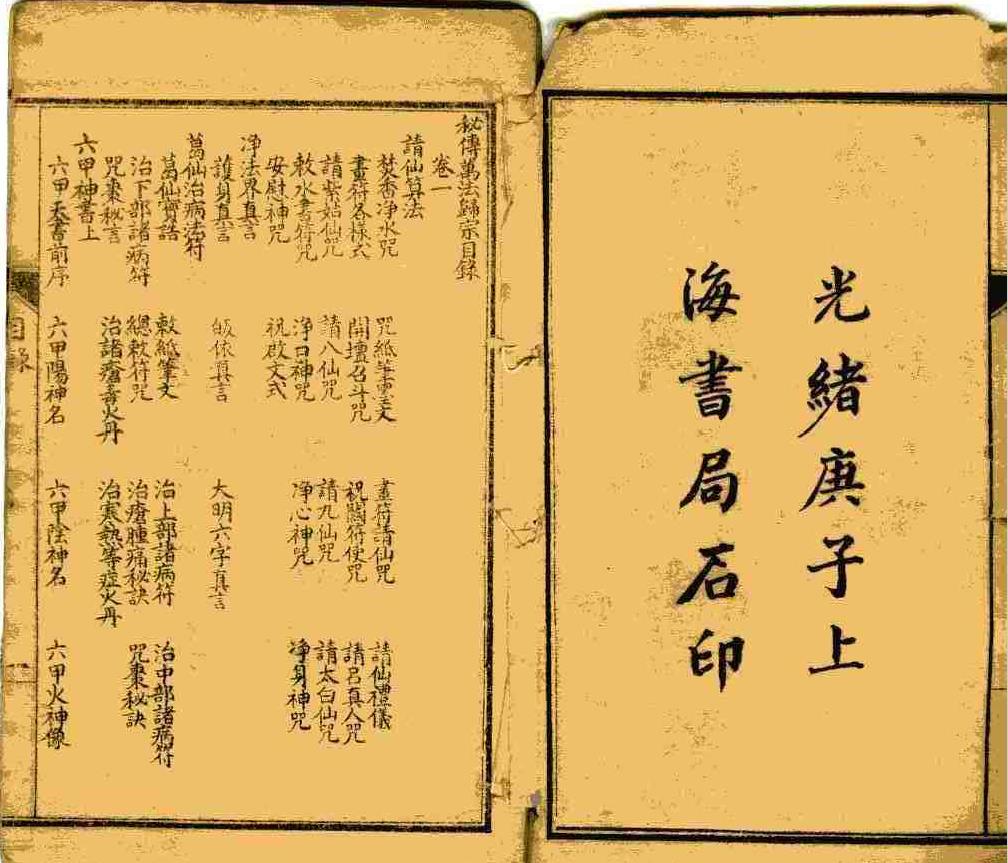 光緒庚子上
海書局石印
秘傳萬法歸宗目錄
卷一
請仙算法
焚香淨水咒 咒紙筆靈文 畫符請仙咒 請仙禮儀
畫符各樣式 開壇召斗咒 祝闕符使咒 請呂真人咒
請紫姑仙咒 請八仙咒 請九仙咒 請太白仙咒
敕水書符咒 淨口神咒 淨心神咒 淨身神咒
安慰神咒 祝啟文式
淨法界真言
護身真言 皈依真言 大明六字真言
葛仙治病法符
葛仙寶誥 敕紙筆文 治上部諸病符 治中部諸病符
治下部諸病符 總敕符咒 治瘡腫痛秘訣 咒棗秘訣
咒棗秘言 治諸瘡毒火丹 治寒熱等症火丹
六甲神書上
六甲天書前序 六甲陽神名 六甲陰神名 六甲火神像
目錄
一